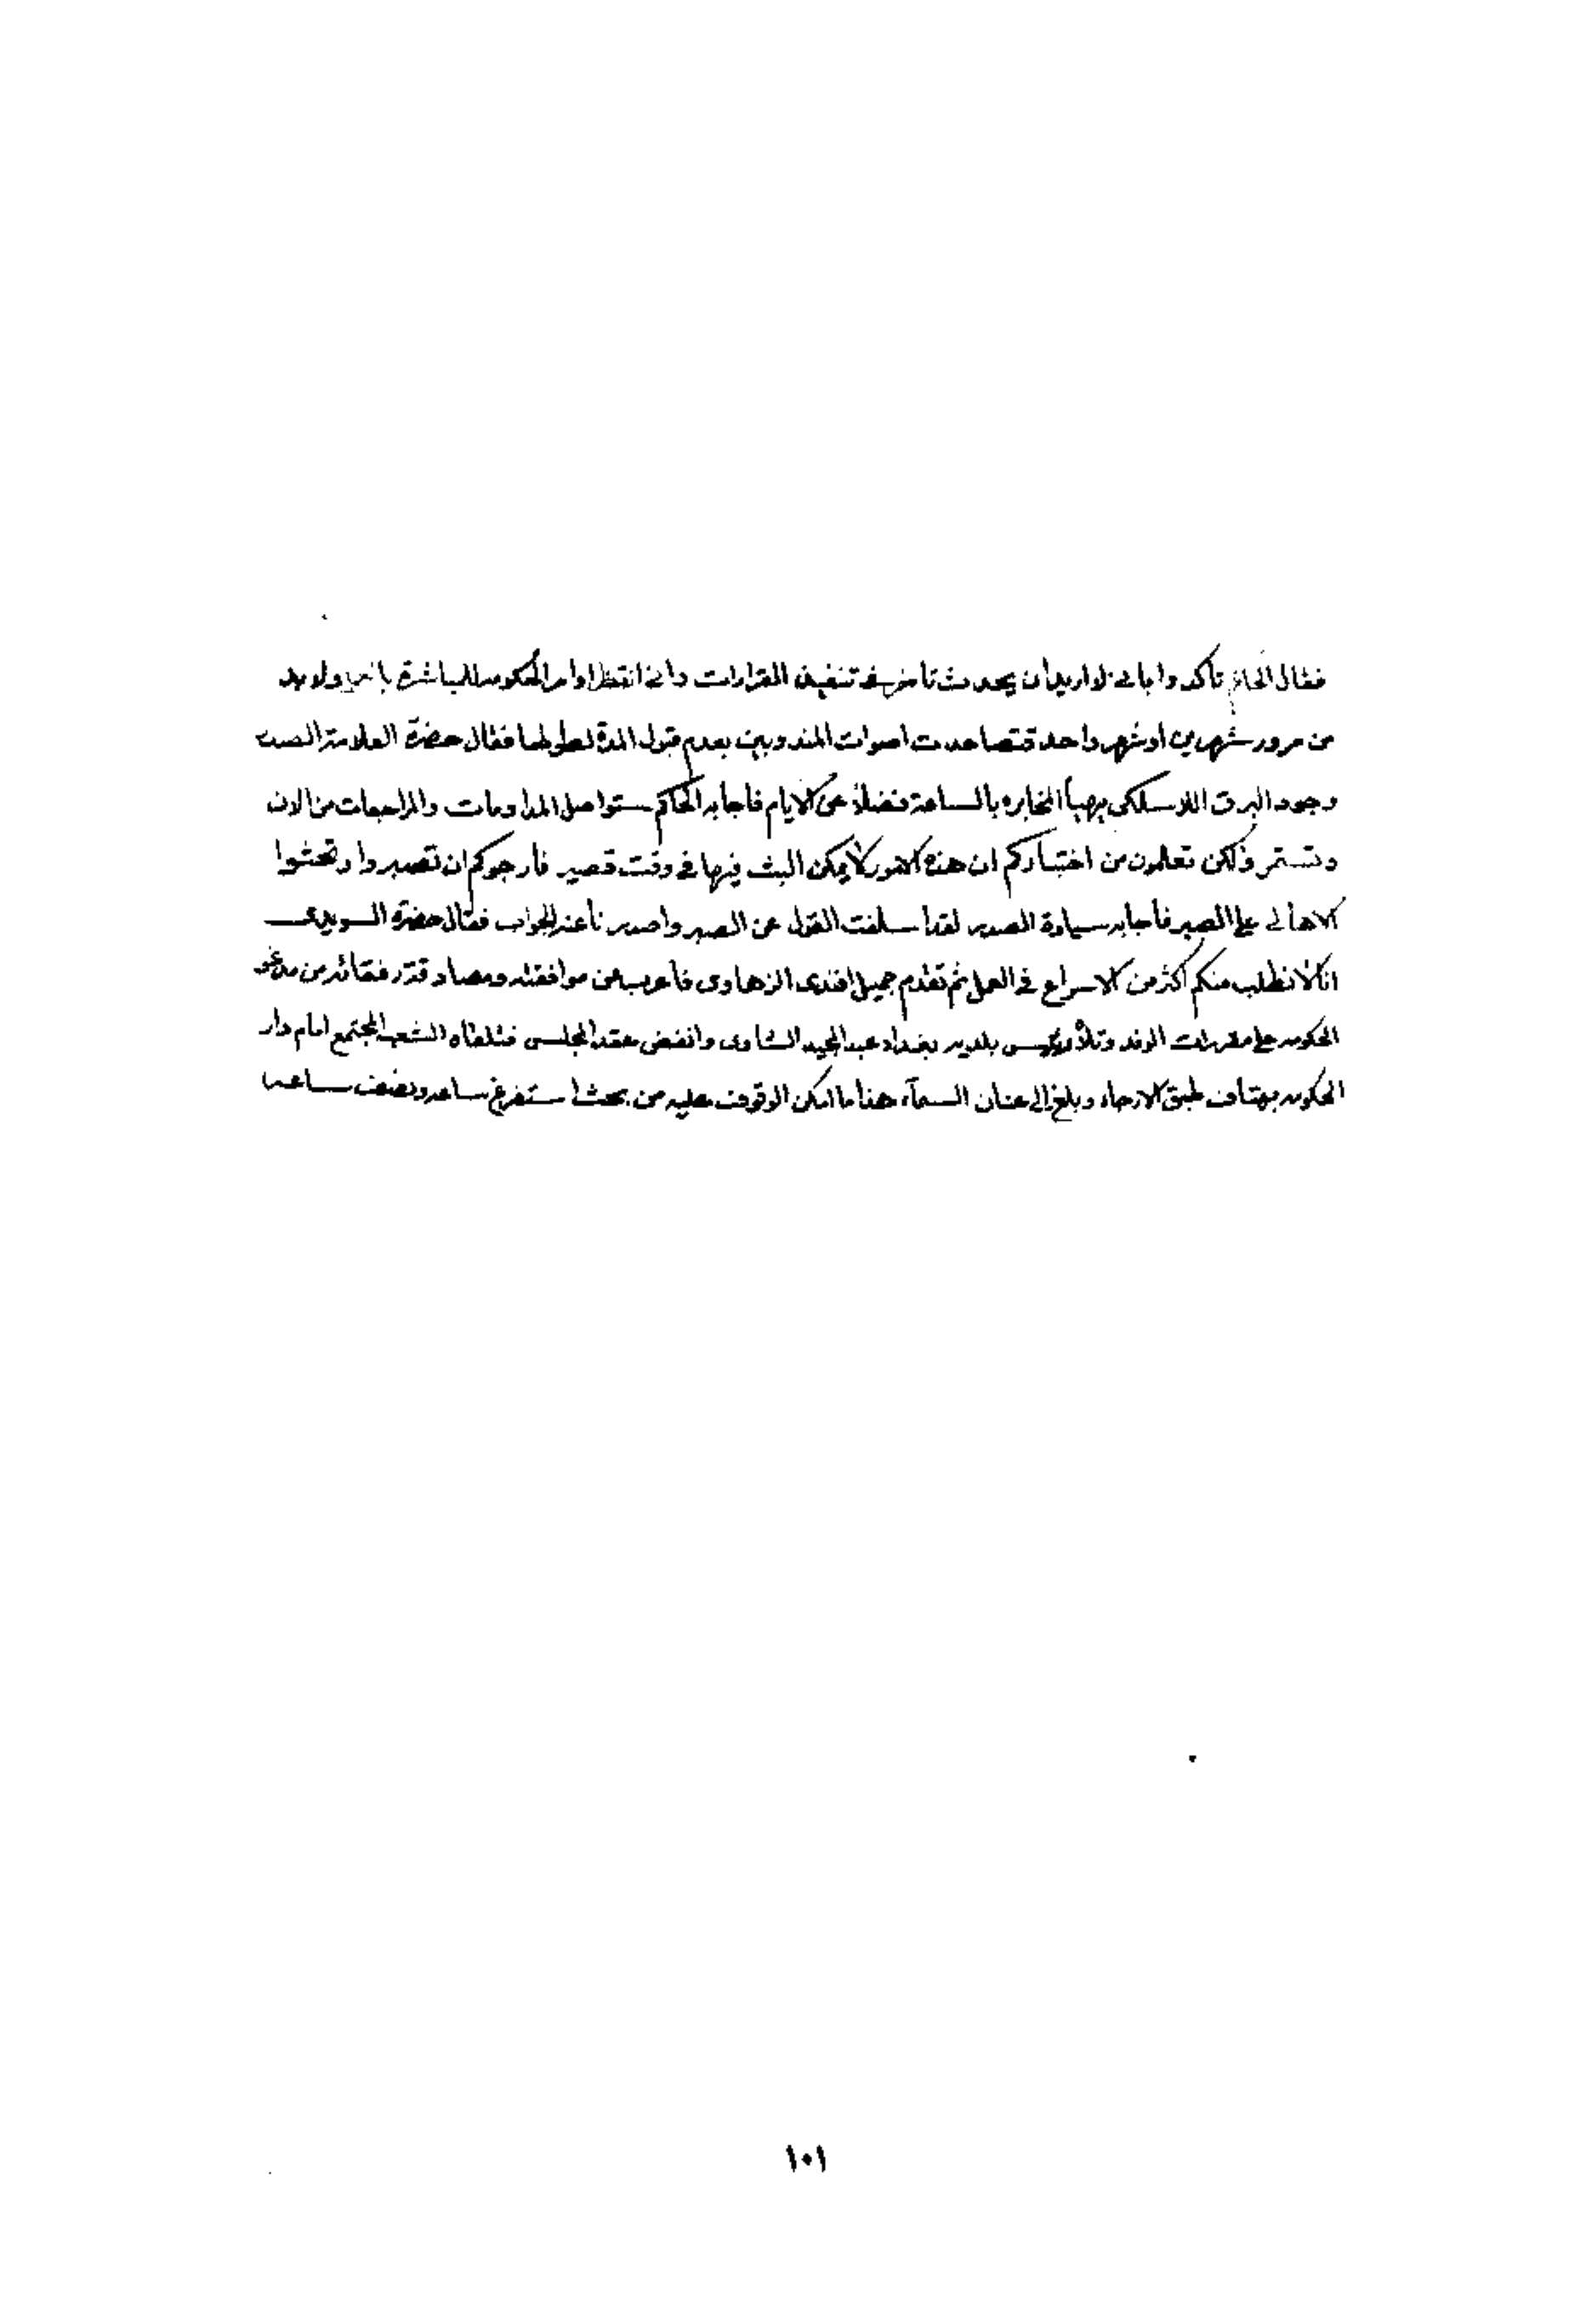 فقال الحاكم تأكدوا باني لا اريد أن يحدث تأخر في تنفيذ القرارات واني انتظر اوامر الحكومه للمباشرة ولا بد
من مرور شهرين او شهر واحد فتصاعدت اصوات المندوبين بعدم قبول المدة لطولها فقال حضرة العلامة الصدر
وجود البرق اللاسلكي يهيأ المخابره بالساعة فضلاً عن الايام فاجابه الحاكم ستواصل المداومات والمراجعات من الان
وتستمر ولكن تعلمون من اختباركم ان هذه الامور لا يمكن البث فيها في وقت قصير فأرجوكم ان تصبروا وتحثوا
الاهالي على الصبر فأجابه سيادة الصدر لقد اسلفت القول عن الصبر واصدرنا عنه الجواب فقال حضرة السويدي
اننا لا نطلب منكم أكثر من الاسراع في العمل ثم تقدم جميل افندي الزهاوي فأعرب عن موافقته ومصادقة رفقائه من مدعو
الحكومه على مقررات الوفد وتلاه رئيس بلديه بغداد عبد المجيد الشاوي وانفض عقد المجلس فتلقاه الشعب المجتمع امام دار
الحكومه بهتاف طبق الارجاء وبلغ الى عنان السمآء هذا ما امكن الوقوف عليه من بحث استغرق ساعه ونصف ساعه
١٠١